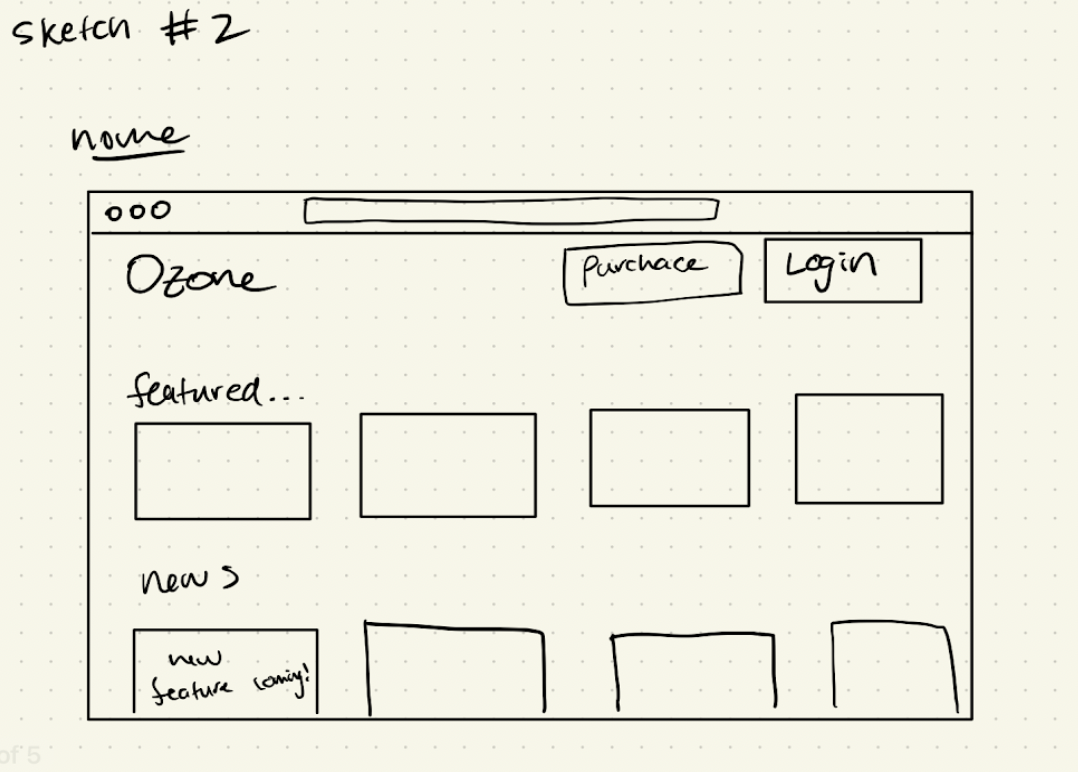 Sketch #2
home
Ozone
Purchace
Login
featured...
news
new
feature coming!
of 5